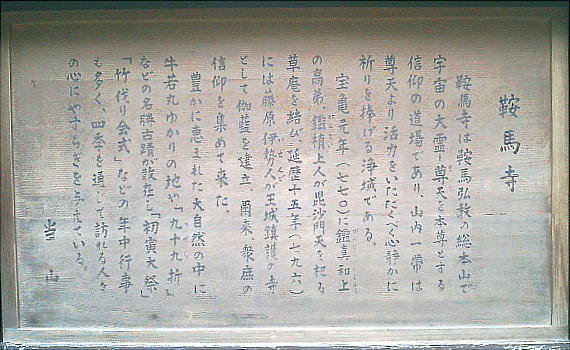 鞍馬寺
鞍馬寺は鞍馬弘教の総本山で
宇宙の大霊-尊天を本尊とする
信仰の道場であり、山内一帯は
尊天より活力をいただくべく心静かに
祈りを捧げる浄域である。
宝亀元年(七七〇)に鑑真和上
の高弟、鑑禎上人が毘沙門天を祀る
草庵を結び延歴十五年(七九六)
には藤原伊勢人が王城鎮護の寺
として伽藍を建立、爾来、衆庶の
信仰を集めて来た。
豊かに恵まれた大自然の中に
牛若丸ゆかりの地や「九十九折」
などの名勝古蹟が散在し「初寅大祭」
「竹伐り会式」などの年中行事
も多く、四季を通じて訪れる人々
の心にやすらぎを与えている。
当山